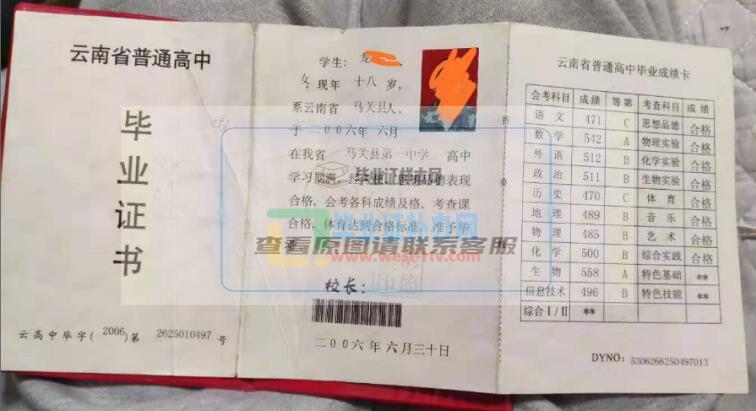 云南省普通高中
毕
业
证
书
云高中毕字( 2006)第 2625010497 号
学生: 龙
女 现年 十八 岁,
系云南省 马关县人,
于二00六年 六月
在我省 马关县第一中学 高中
学习期满, 思想品德表现
合格,会考各科成绩及格,考查课
合格,体育达到合格标准,准予毕
业
毕业证样本网
毕业证补办网
查看原图请联系客服
校长:
二00六年 六月三十日
云南省普通高中毕业成绩卡
会考科目 成绩 等第 考查科目 成绩
语文 471 C 思想品德 合格
数学 542 A 物理实验 合格
外语 512 B 化学实验 合格
政治 511 B 生物实验 合格
历史 470 C 体育 合格
地理 489 B 音乐 合格
物理 485 B 艺术 合格
化学 500 B 综合实践 合格
生物 558 A 特色基础 **
信息技术 496 B 特色技能 **
综合Ⅰ/Ⅱ **
DYNO: 5306266250497013